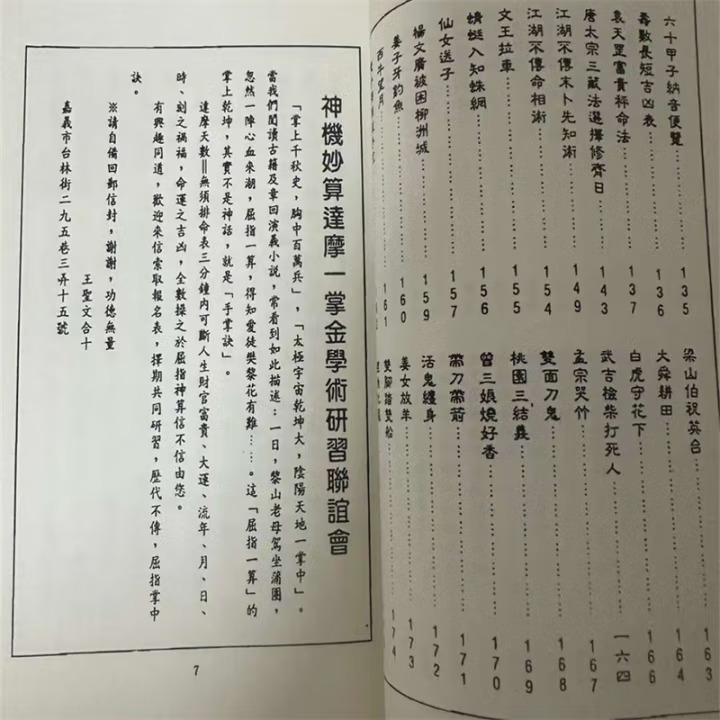 六十甲子納音便覽……135
壽數長短吉凶表……136
袁天罡富貴秤命法……137
唐太宗三藏法選擇修齊日……143
江湖不傳未卜先知術……149
江湖不傳命相術……154
文王拉車……155
蜻蜓入知蛛網……156
仙女送子……157
楊文廣被困柳州城……159
姜子牙釣魚……160
西牛望月……161
梁山伯祝英台……163
大舜耕田……166
白虎守花下……一六四
武吉撿柴打死人
孟宗哭竹……167
雙面刀鬼……168
桃園三結義……169
曾三娘燒好香……170
帶刀帶箭……171
活鬼纏身……172
姜女放羊……173
雙腳踏雙船……174
神機妙算達摩一掌金學術研習聯誼會
「掌上千秋史，胸中百萬兵」，「太極宇宙乾坤大，陰陽天地一掌中」。
當我們閱讀古籍及章回演義小說，常看到如此描述：一日，黎山老母駕坐蒲團，
忽然一陣心血來潮，屈指一算，得知愛徒樊黎花有難……。這「屈指一算」的
掌上乾坤，其實不是神話，就是「手掌訣」。
達摩天數＝無須排命表三分鐘內可斷人生財官富貴、大運、流年、月、日、
時、刻之禍福，命運之吉凶，全數操之於屈指神算信不信由您。
有興趣同道，歡迎來信索取報名表，擇期共同研習，歷代不傳，屈指掌中
訣。
※請自備回郵信封，謝謝，功德無量
王聖文合十
嘉義市台林街二九五巷三弄十五號
7